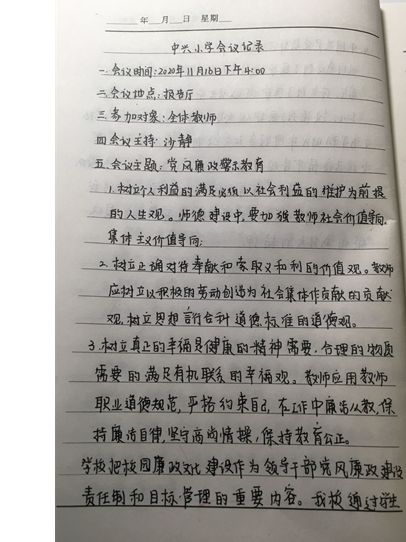 年 月 日 星期
中兴小学会议纪录
一.会议时间:2020年11月16日下午4:00
二.会议地点:报告厅
三.参加对象:全体教师
四.会议主持:沙静
五.会议主题:党风廉政警示教育
1.树立个人利益的满足必须以社会利益的维护为前提
的人生观。师德建设中,要加强教师社会价值导向、
集体主义价值导向;
2.树立正确对待奉献和索取义和利的价值观。教师
应树立以积极的劳动创造为社会集体作贡献的贡献
观,树立思想言行合乎道德标准的道德观。
3.树立真正的幸福是健康的精神需要、合理的物质
需要的满足有机联系的幸福观。教师应用教师
职业道德规范,严格约束自己,在工作中廉洁从教,保
持廉洁自律,坚守高尚情操,保持教育公正。
学校把校园廉政文化建设作为领导干部党风廉政建设
责任制和目标管理的重要内容。我校通过学生